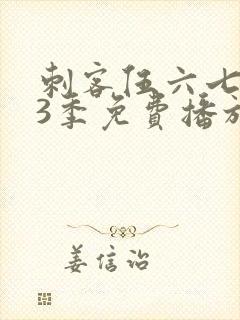 刺客伍六七
3季免费播放
姜信治